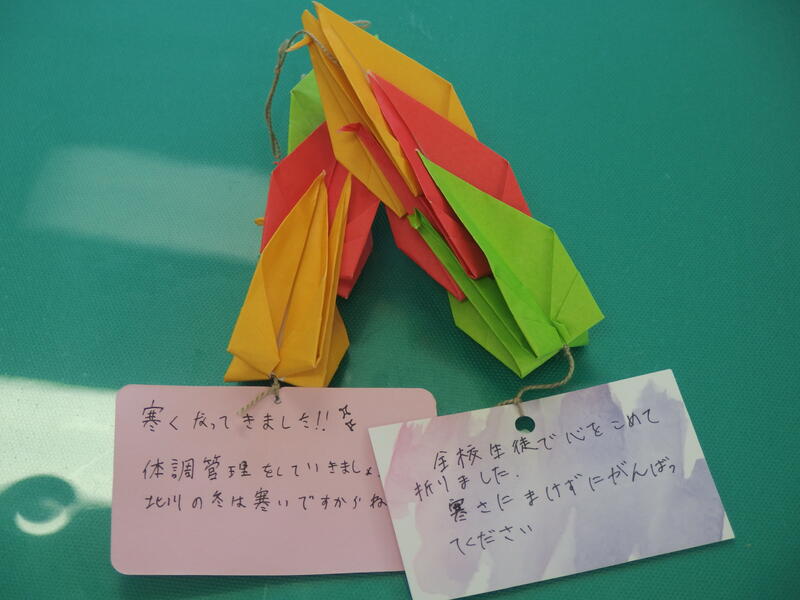 寒くなってきました!!
体調管理をしていきましょ
北川の冬は寒いですからね
全校生徒で心をこめて
折りました.
寒さにまけずにがんばっ
てください